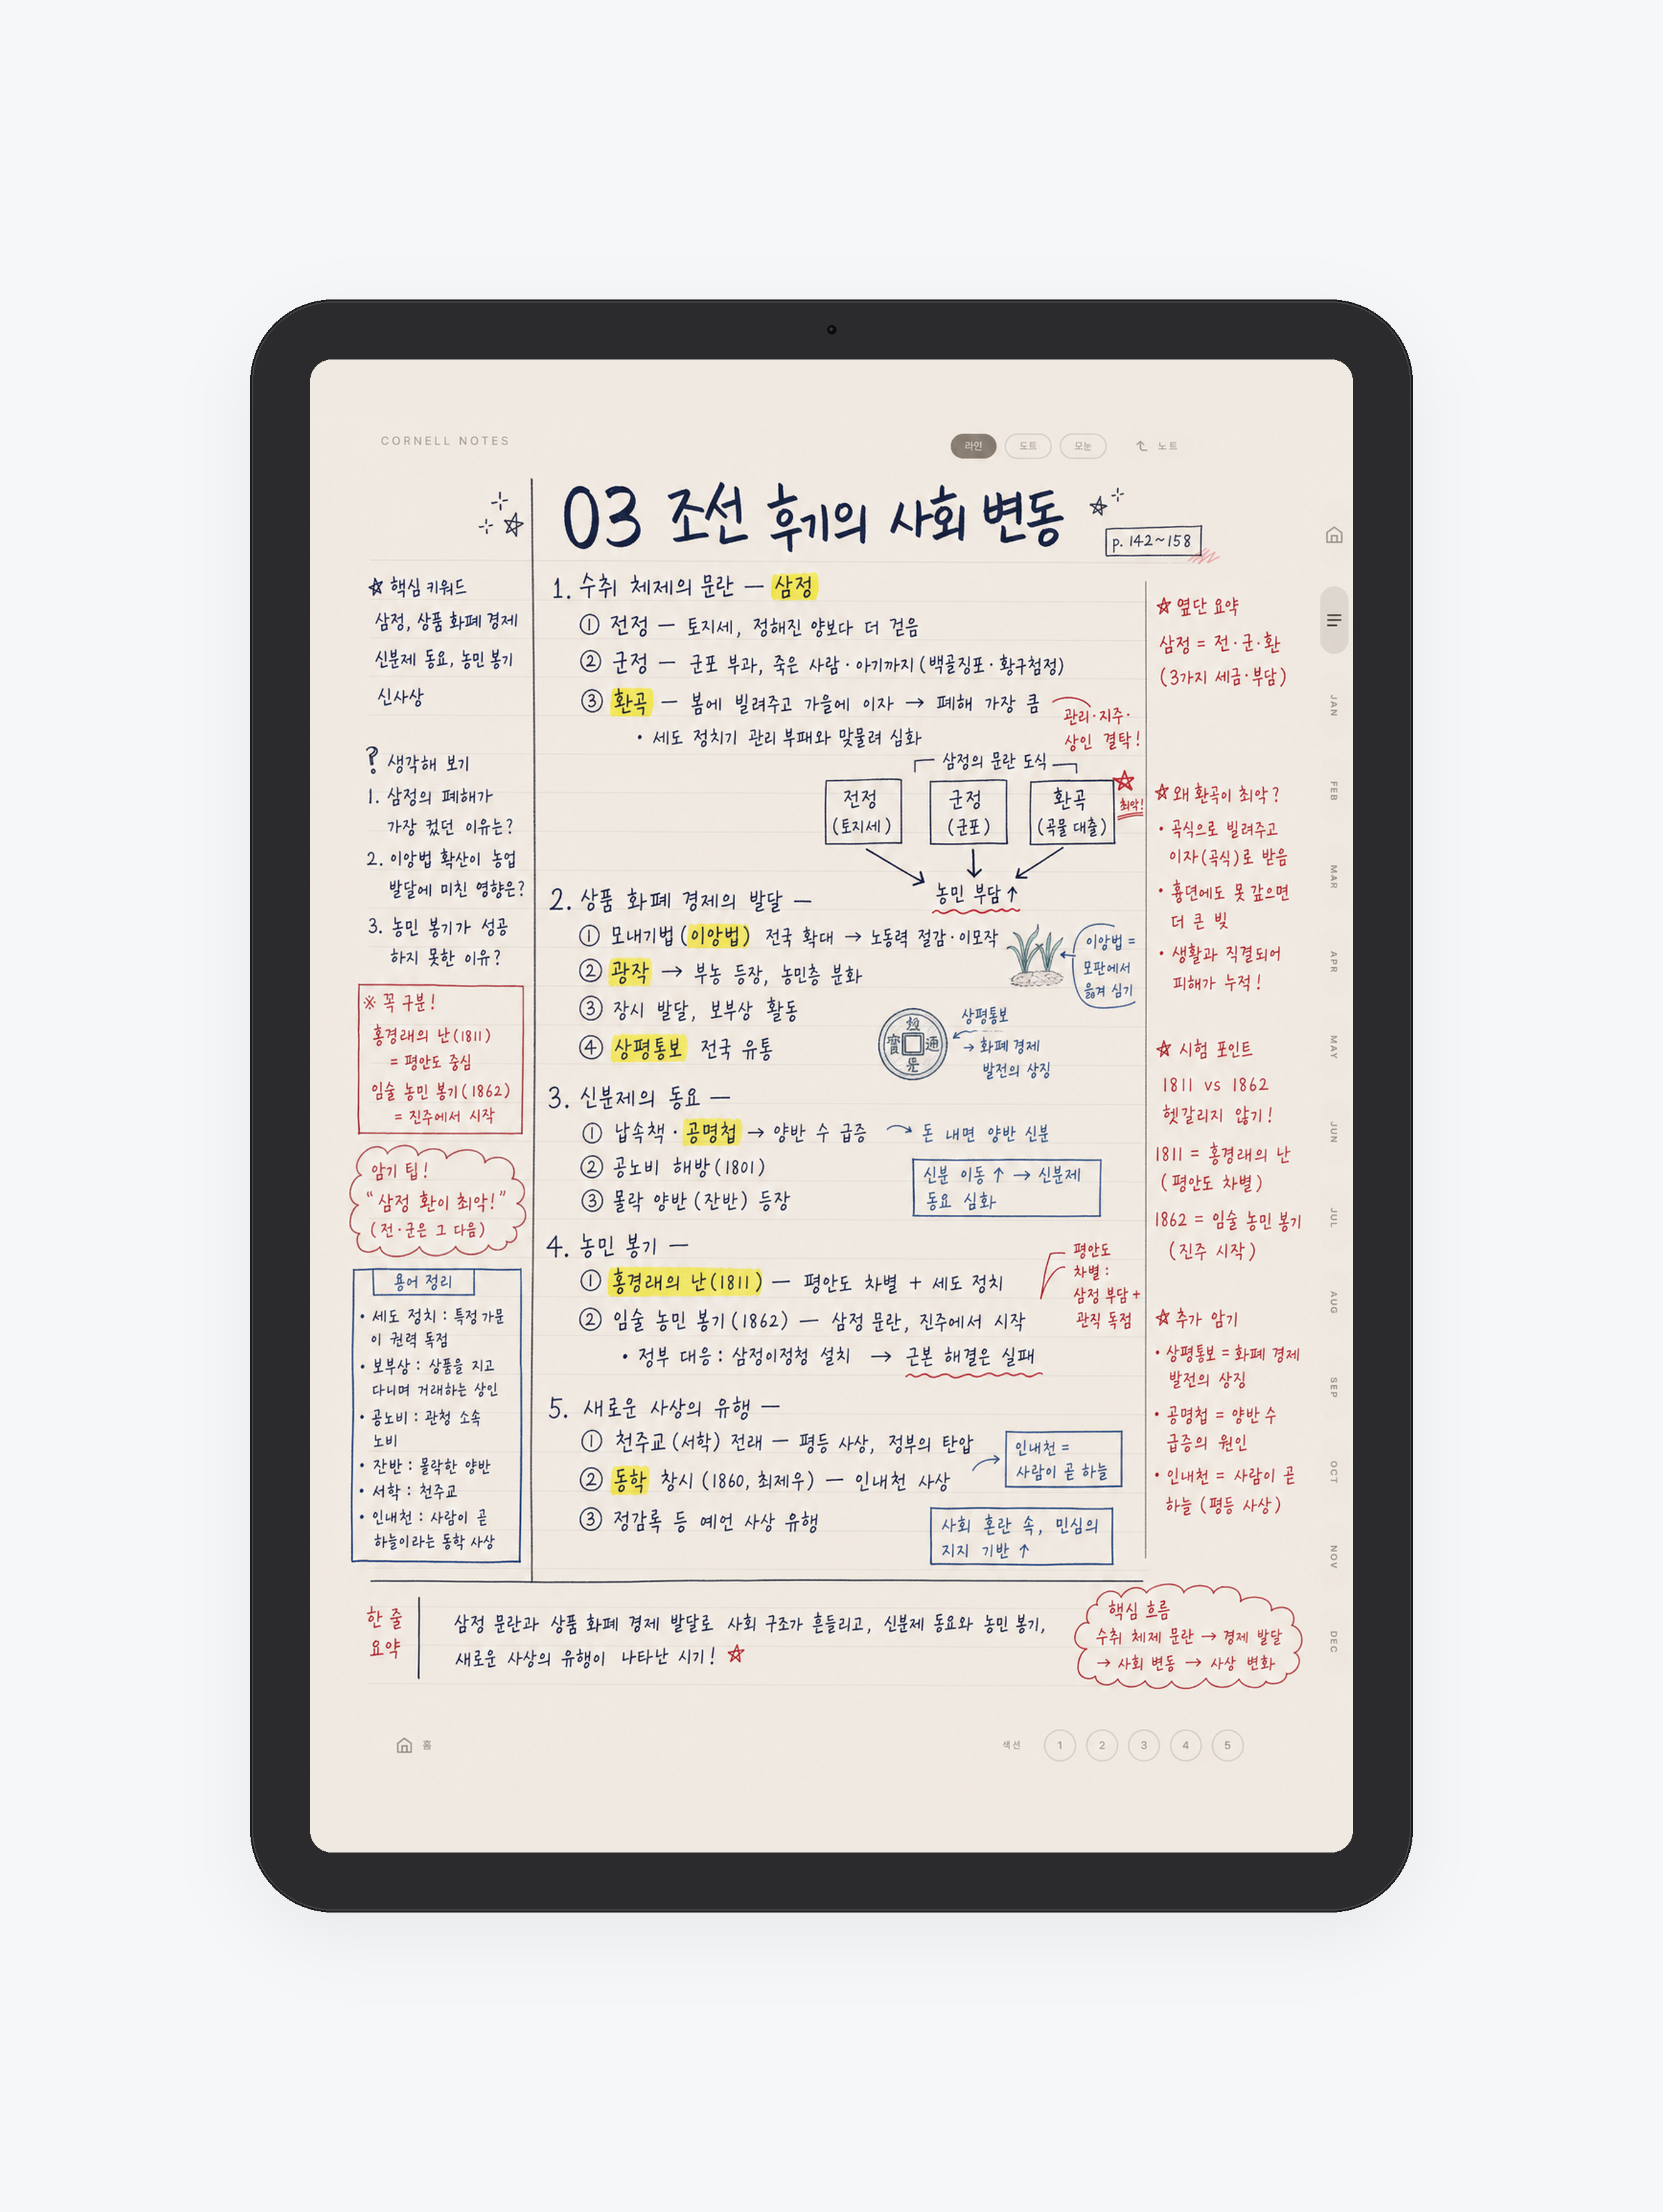 CORNELL NOTES
라인 도트 모눈 노트
03 조선 후기의 사회 변동
p. 142~158
☆ 핵심 키워드
삼정, 상품 화폐 경제
신분제 동요, 농민 봉기
신사상
? 생각해 보기
1. 삼정의 폐해가
가장 컸던 이유는?
2. 이앙법 확산이 농업
발달에 미친 영향은?
3. 농민 봉기가 성공
하지 못한 이유?
※ 꼭 구분!
홍경래의 난(1811)
= 평안도 중심
임술 농민 봉기(1862)
= 진주에서 시작
암기 팁!
“삼정 환이 최악!”
(전·군은 그 다음)
용어 정리
• 세도 정치 : 특정 가문
이 권력 독점
• 보부상 : 상품을 지고
다니며 거래하는 상인
• 공노비 : 관청 소속
노비
• 잔반 : 몰락한 양반
• 서학 : 천주교
• 인내천 : 사람이 곧
하늘이라는 동학 사상
1. 수취 체제의 문란 — 삼정
① 전정 — 토지세, 정해진 양보다 더 걷음
② 군정 — 군포 부과, 죽은 사람·아기까지 (백골징포·황구첨정)
③ 환곡 — 봄에 빌려주고 가을에 이자 → 폐해 가장 큼
관리·지주·
상인 결탁!
• 세도 정치기 관리 부패와 맞물려 심화
삼정의 문란 도식
전정
(토지세)
군정
(군포)
환곡
(곡물 대출)
☆
최악!
농민 부담↑
2. 상품 화폐 경제의 발달 —
① 모내기법 (이앙법) 전국 확대 → 노동력 절감·이모작
이앙법 =
모판에서
옮겨 심기
② 광작 → 부농 등장, 농민층 분화
③ 장시 발달, 보부상 활동
④ 상평통보 전국 유통
通
寶
상평통보
→ 화폐 경제
발전의 상징
3. 신분제의 동요 —
① 납속책·공명첩 → 양반 수 급증
돈 내면 양반 신분
② 공노비 해방(1801)
③ 몰락 양반 (잔반) 등장
신분 이동 ↑ → 신분제
동요 심화
4. 농민 봉기 —
① 홍경래의 난(1811) — 평안도 차별 + 세도 정치
평안도
차별 :
삼정 부담 +
관직 독점
② 임술 농민 봉기(1862) — 삼정 문란, 진주에서 시작
• 정부 대응 : 삼정이정청 설치 → 근본 해결은 실패
5. 새로운 사상의 유행 —
① 천주교 (서학) 전래 — 평등 사상, 정부의 탄압
② 동학 창시 (1860, 최제우) — 인내천 사상
인내천 =
사람이 곧 하늘
③ 정감록 등 예언 사상 유행
사회 혼란 속, 민심의
지지 기반 ↑
☆ 옆단 요약
삼정 = 전·군·환
(3가지 세금·부담)
☆ 왜 환곡이 최악?
• 곡식으로 빌려주고
이자(곡식)로 받음
• 흉년에도 못 갚으면
더 큰 빚
• 생활과 직결되어
피해가 누적!
☆ 시험 포인트
1811 vs 1862
헷갈리지 않기!
1811 = 홍경래의 난
(평안도 차별)
1862 = 임술 농민 봉기
(진주 시작)
☆ 추가 암기
• 상평통보 = 화폐 경제
발전의 상징
• 공명첩 = 양반 수
급증의 원인
• 인내천 = 사람이 곧
하늘 (평등 사상)
한 줄
요약
삼정 문란과 상품 화폐 경제 발달로 사회 구조가 흔들리고, 신분제 동요와 농민 봉기,
새로운 사상의 유행이 나타난 시기! ☆
핵심 흐름
수취 체제 문란 → 경제 발달
→ 사회 변동 → 사상 변화
홈
색션 1 2 3 4 5
JAN
FEB
MAR
APR
MAY
JUN
JUL
AUG
SEP
OCT
NOV
DEC